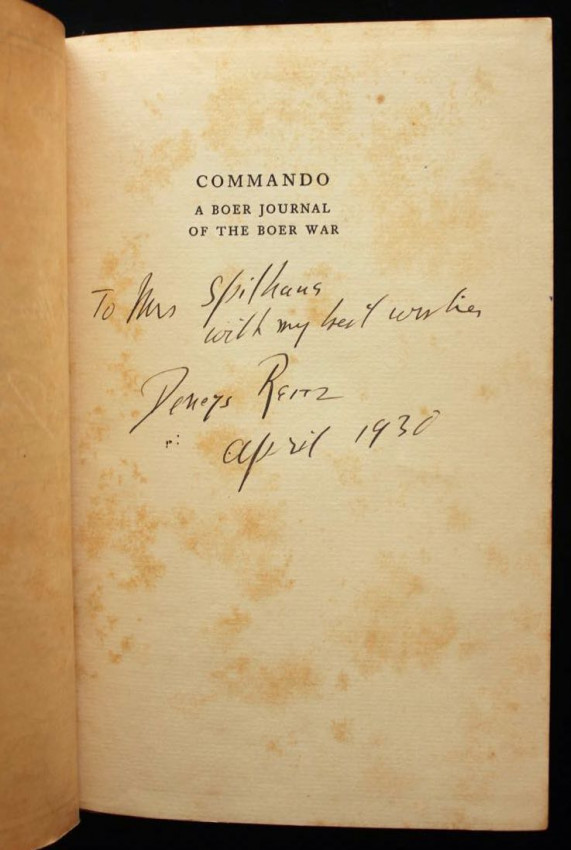 COMMANDO
A BOER JOURNAL
OF THE BOER WAR
To Mrs Spilhaus
with my best wishes
Deneys Reitz
april 1930